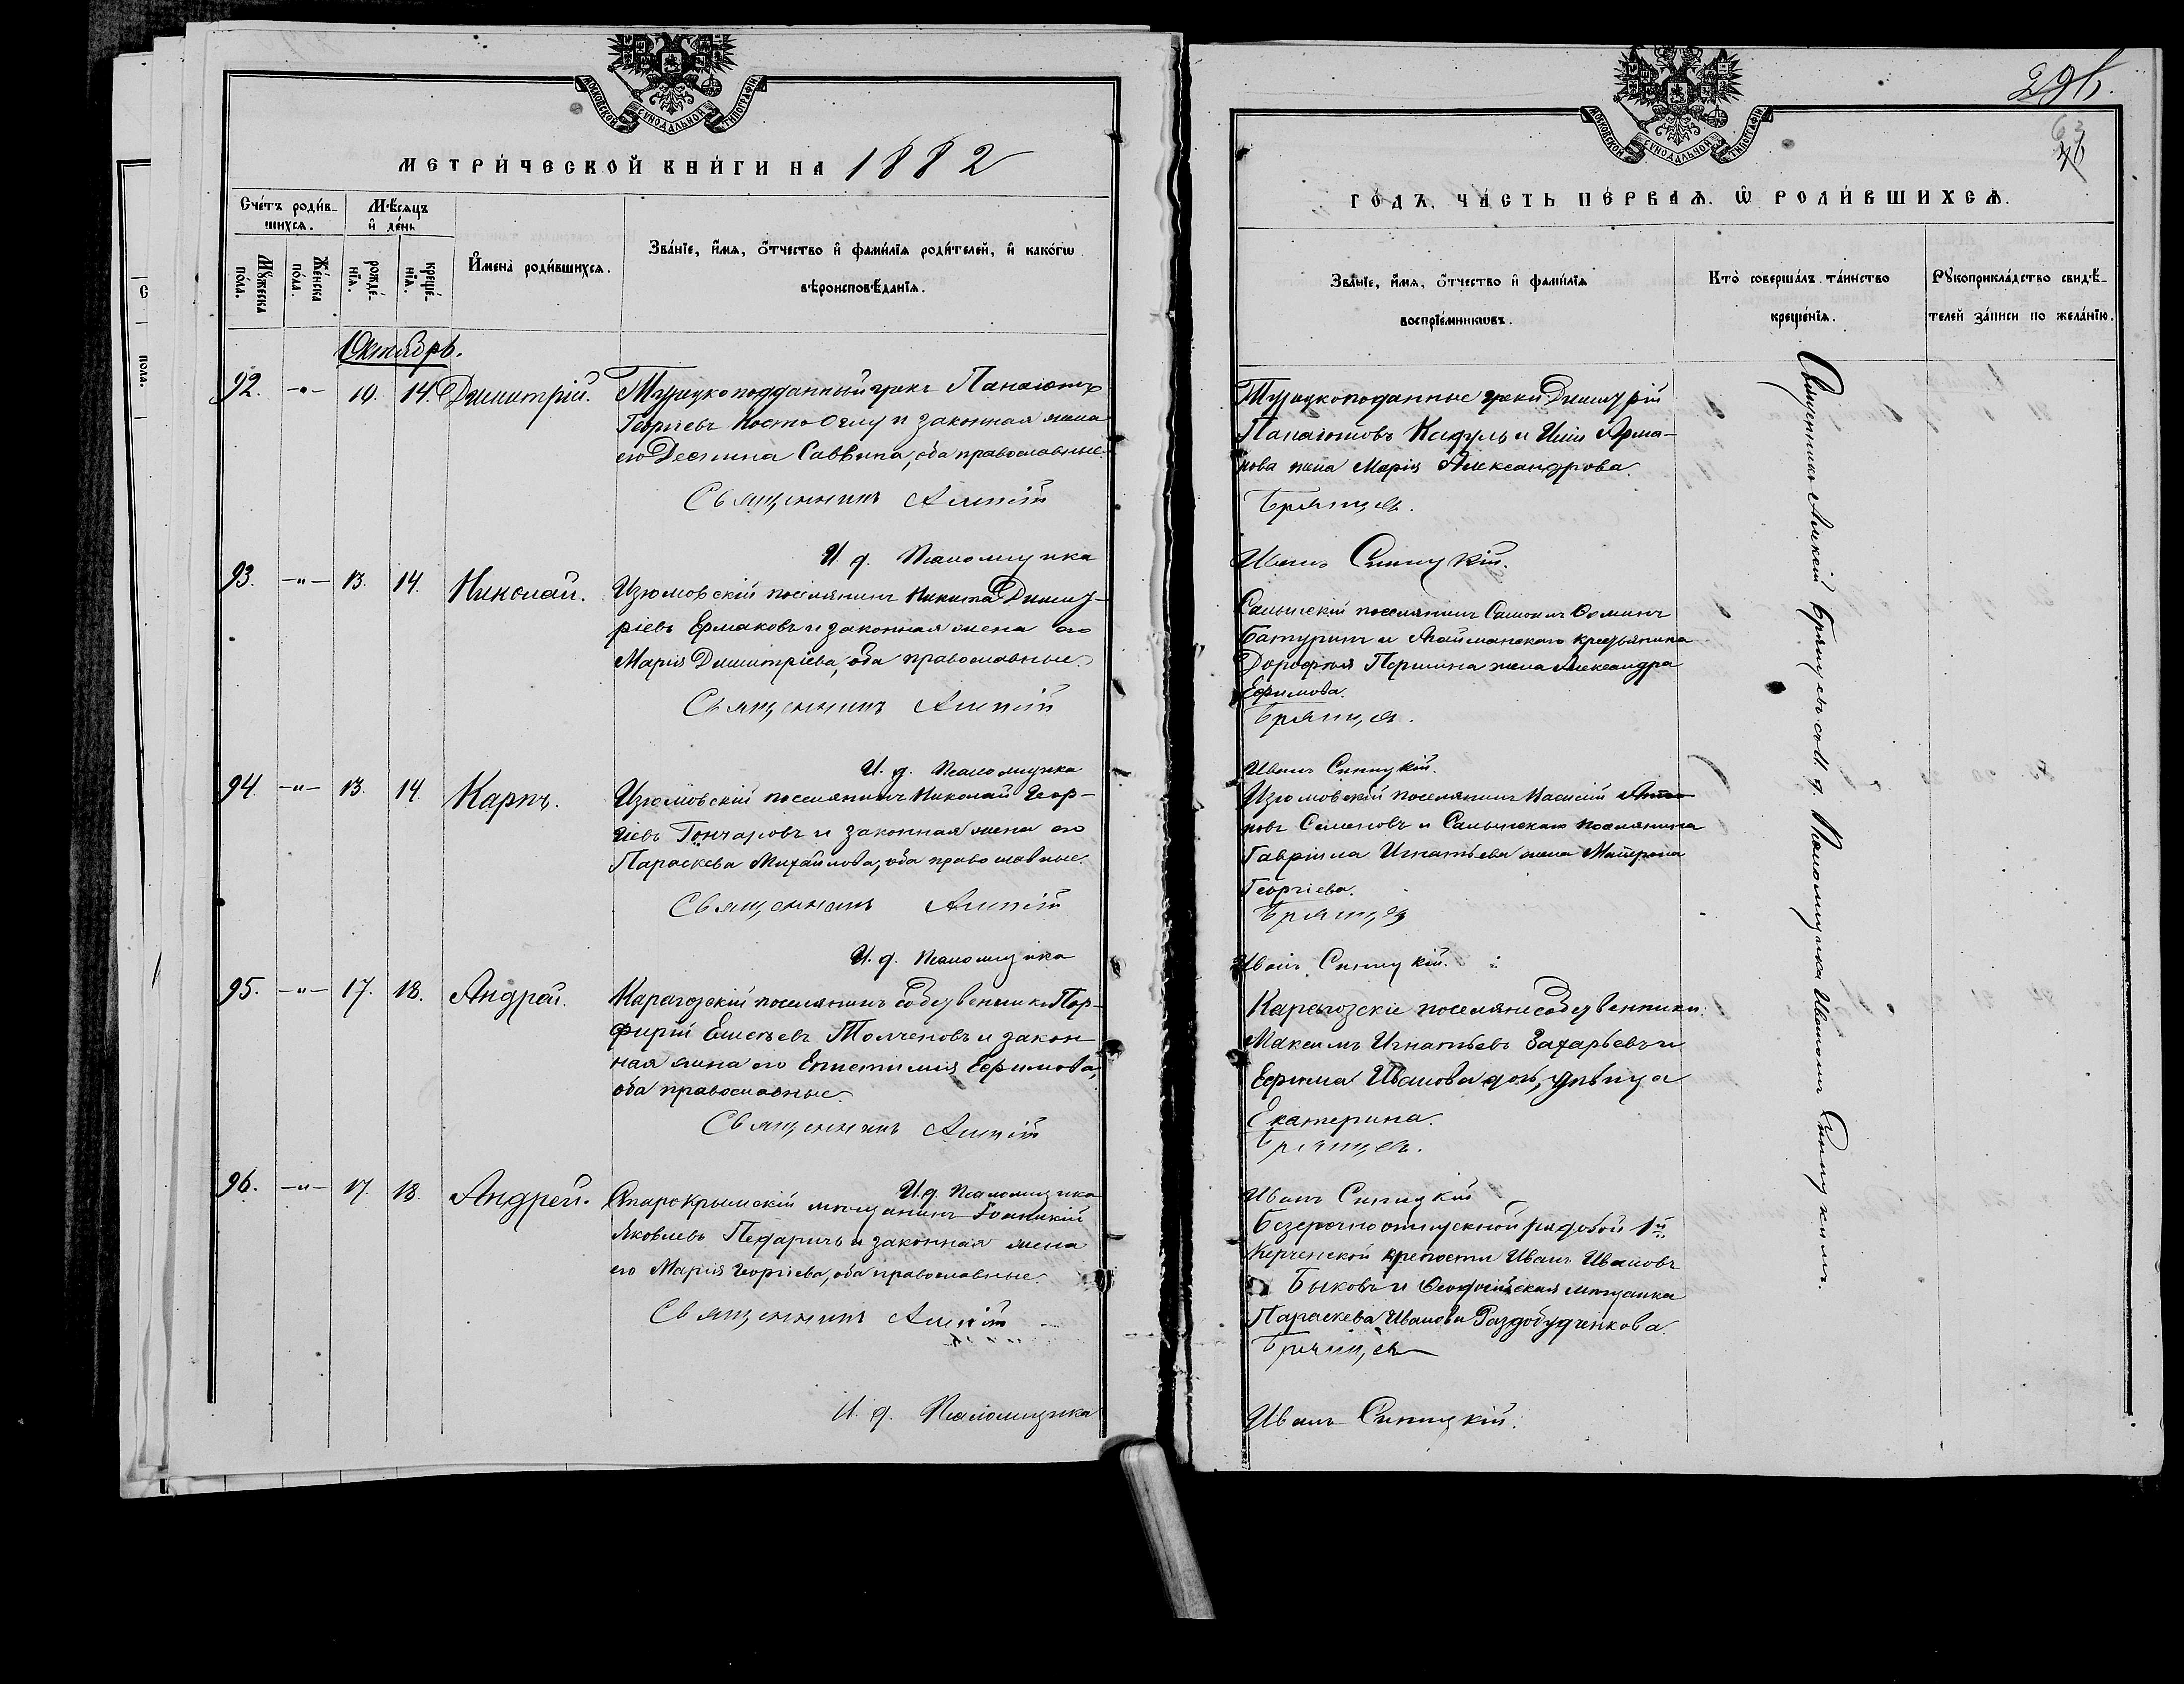 МОСКОВСКОЙ СУНОДАЛЬНОЙ ТИПОГРАФІИ
МЕТРИ́ЧЕСКОЙ КНИ́ГИ НА 1882
Сче́тъ роди́в-
шихсѧ.
Мѣ́сѧцъ
и҆ де́нь
Мꙋ́жеска по́ла.
Же́нска по́ла.
рожде́нїѧ.
креще́нїѧ.
И҆мена̀ роди́вшихсѧ.
Зва́нїе, и҆́мѧ, ѻ҆́тчество и҆ фами́лїѧ роди́телей, и҆ како́гѡ
вѣроисповѣ́данїѧ.
Октябрь.
92. -"- 10. 14. Димитрій. Турецкоподданный грекъ Панаіотъ
Георгіевъ Косто Оглу и законная жена
его Деспина Саввина, оба православные.
Священникъ Алексій
И. д. Псаломщика
93. -"- 13. 14. Николай. Изюмовскій поселянинъ Никита Димит-
ріевъ Ермаковъ и законная жена его
Марія Димитріева, оба православные.
Священникъ Алексій
И. д. Псаломщика
94. -"- 13. 14. Карпъ. Изюмовскій поселянинъ Николай Геор-
гіевъ Гончаровъ и законная жена его
Параскева Михайлова, оба православные.
Священникъ Алексій
И. д. Псаломщика
95. -"- 17. 18. Андрей. Карагозскій поселянинъ собственникъ Пор-
фирій Елисѣевъ Толченовъ и закон-
ная жена его Епистимія Ефимова,
оба православные.
Священникъ Алексій
И. д. Псаломщика
96. -"- 17. 18. Андрей. Старокрымскій мѣщанинъ Іоаникій
Яковлевъ и законная жена
его Марія Георгіева, оба православные.
Священникъ Алексій
И. д. Псаломщика
МОСКОВСКОЙ СУНОДАЛЬНОЙ ТИПОГРАФІИ
ГО́ДЪ, ЧА́СТЬ ПЕ́РВАѦ, Ѡ҆ РОДИ́ВШИХСѦ.
Зва́нїе, и҆́мѧ, ѻ҆́тчество и҆ фами́лїѧ
воспрїе́мникѡвъ.
Кто̀ соверша́лъ та́инство
креще́нїѧ.
Рꙋкоприкла́дство свидѣ́-
телей за́писи по жела́нїю.
Турецкоподанные греки Димитрій
Панаіотовъ и Арма-
нова жена Марія Александрова.
Брянцевъ.
Иванъ Синицкій.
Салынскій поселянинъ
Батуринъ и крестьянина
Дорофея Першина жена Александра
Ефимова.
Брянцевъ.
Иванъ Синицкій.
Изюмовскій поселянинъ
новъ Семеновъ и Салынскаго поселянина
Гавріила Игнатьева жена Матрона
Георгіева.
Брянцевъ
Иванъ Синицкій.
Карагозскіе поселяне собственники:
Максимъ Игнатьевъ Захарьевъ и
Ефима Иванова дочь, дѣвица
Екатерина.
Брянцевъ.
Иванъ Синицкій
Безсрочноотпускной рядовой 1й
Керченской крепости Иванъ Ивановъ
Быковъ и Феодосійская мѣщанка
Параскева Иванова Раздобудченкова.
Брянцевъ
Иванъ Синицкій.
Священникъ Алексій Брянцевъ съ И. д. Псаломщика Иваномъ Синицкимъ.